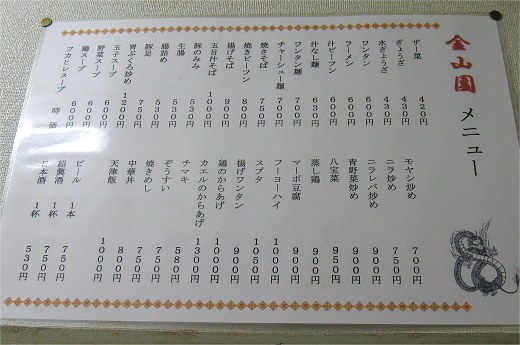 金山園 メニュー
ザー菜 420円
ぎょうざ 430円
水ぎょうざ 430円
ワンタン 600円
ラーメン 600円
汁ビーフン 600円
汁なし麺 630円
ワンタン麺 700円
チャーシュー麺 700円
焼きそば 750円
焼きビーフン 800円
揚げそば 900円
五目汁そば 1000円
豚のみみ 530円
生腸 530円
腸詰め 530円
豚足 750円
胃ぶくろ炒め 1200円
玉子スープ 600円
野菜スープ 600円
鶏スープ 600円
フカヒレスープ 時価
モヤシ炒め 700円
ニラ炒め 750円
ニラレバ炒め 900円
青野菜炒め 900円
八宝菜 950円
蒸し鶏 900円
マーボ豆腐 900円
フーヨーハイ 1000円
スブタ 1050円
揚げワンタン 900円
鶏のからあげ 1000円
カエルのからあげ 1300円
チマキ 580円
ぞうすい 750円
焼きめし 750円
中華丼 800円
天津飯 1000円
ビール 1本 750円
紹興酒 1杯 750円
日本酒 1杯 530円